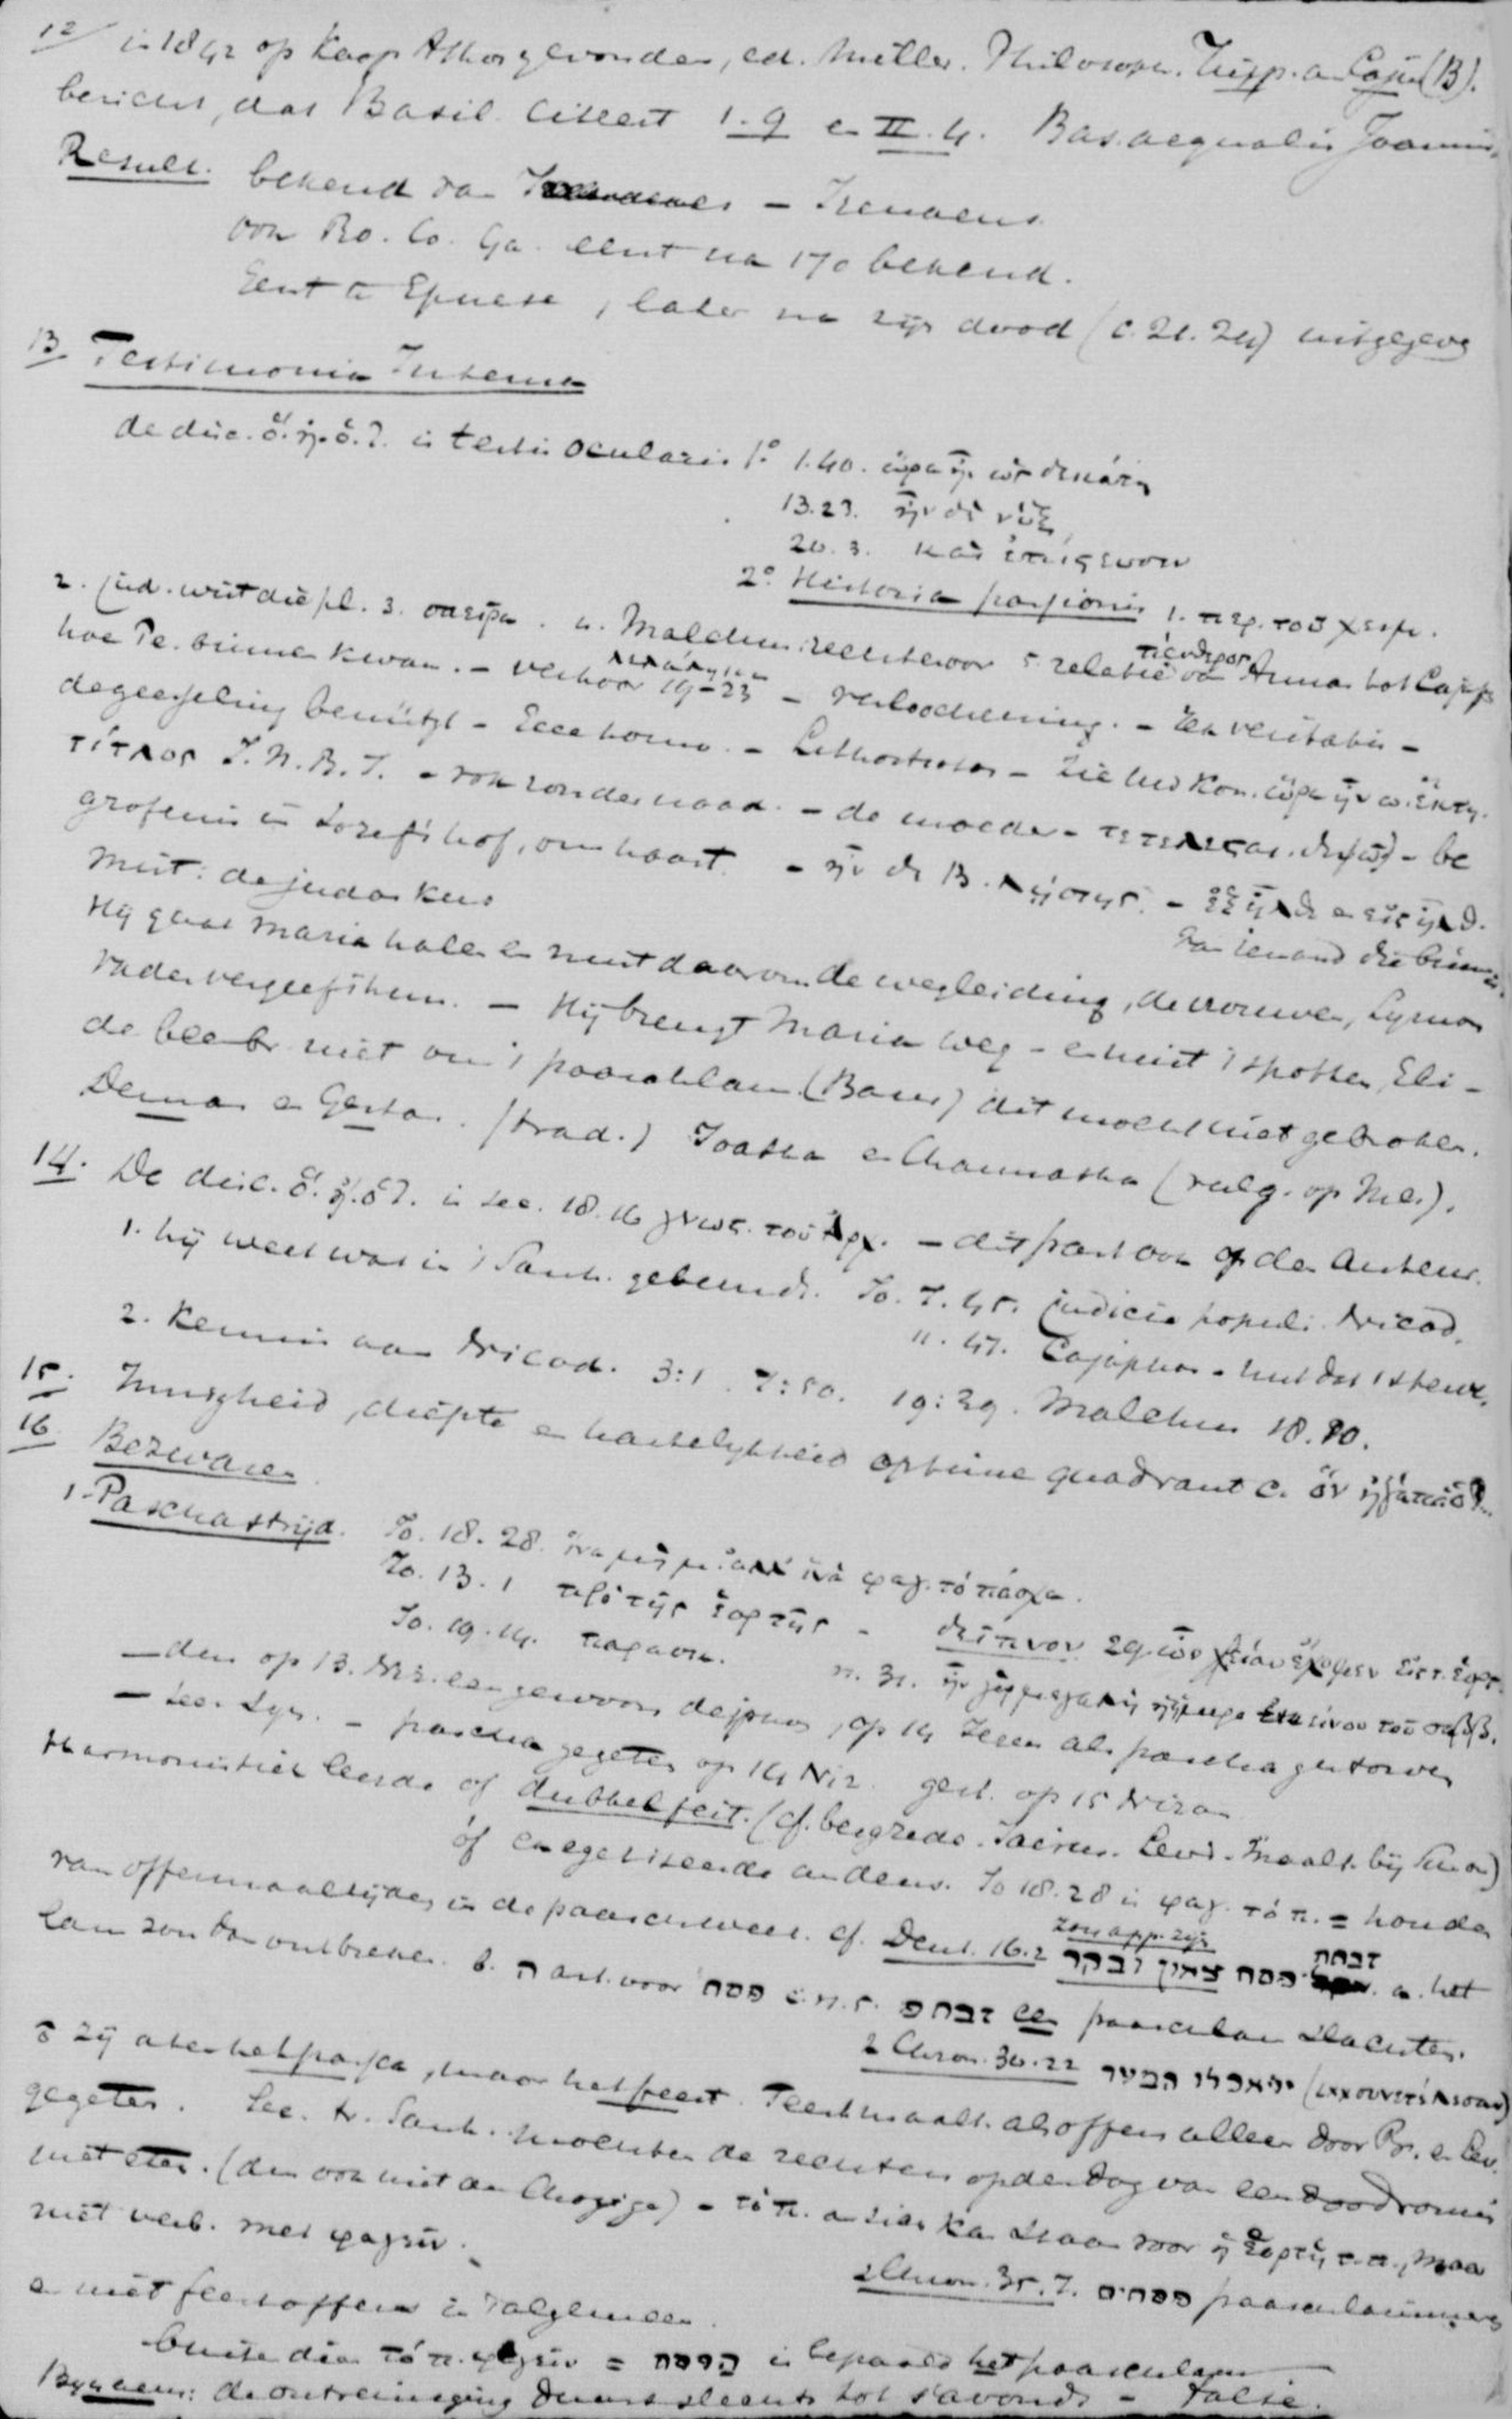 12/ in 1842 op Kaap Athos gevonden, ed. Miller. Philosoph. Hipp. a Caju (B).
bericht, dat Basil. citeert 1.9 en II.4. Bas. aequalis Joannis.
Result. bekend van - Irenaeus.
voor Ro. Co. Ga. eerst na 170 bekend.
Eerst te Ephese, later na zijn dood (c. 21.24) uitgegeven
13 Testimonia Interna
de disc. ὃν ἠγ. ὁ Ἰ. is testis ocularis 1º 1.40. ὥρα ἦν ὡς δεκάτη
13.23. ἦν δὲ νύξ
20.3. καὶ ἐπίστευσεν
2º Historia passionis 1. περ. τοῦ χειμ.
2. Jud. wist die pl. 3. σπεῖρα. 4. Malchus rechteroor 5. relatie van Annas tot Cajaf
πενθερος
hoe Pe. binnen kwam. - verhoor 19-23 - verloochening. - veritatis -
de geeseling - Ecce homo. - Lithostrotos - Zie uw Kon. ὥρα ἦν ὡ. ἕκτη.
τίτλος I.N.R.I. - rok zonder naad. - de moeder - τετελεσται. διψῶ - be
grafenis in Jozefs hof, om haast. - ἦν δὲ Β. λῃστής. - ἐξῆλθε en εἰσῆλθ.
mist: de judaskus van iemand die binnen is.
Hij gaat Maria halen en mist daarom de wegleiding, de vrouwen, Symon
vader vergeef 't hun. - Hij brengt Maria weg - en mist 't spotten, Eli -
de been br. niet om 't paaschlam (Baur) dit mocht niet gebroken.
Demas en Gestas. (trad.) Joatha en Chammatha (vulg. op Mc.).
14. De disc. ὃν ἠγ. ὁ Ἰ. is sec. 18.16 γνως. τοῦ ἀρχ. - dit past ook op den auteur.
1. hij weet wat in 't Sanh. gebeurde. Jo. 7.45. judicia populi. Nicod.
11.47. Cajaphas -
2. Kennis aan Nicod. 3:1. 7:50. 19:39. Malchus 18.10.
15. Innigheid, diepte en hartelykheid optime quadrant c. ὃν ἠγάπα ὁ Ἰ.
16 Bezwaren
1. Paschastrijd. Jo. 18.28. ἵνα μὴ μι. ἀλλ' ἵνα φαγ. τὸ πάσχα.
Jo. 13.1 πρὸ τῆς ἑορτῆς - δεῖπνον 29 ὧν χρείαν ἔχομεν εἰς τ. ἑορτ.
Jo. 19.14. παρασκ. v. 31. ἦν γὰρ μεγάλη ἡ ἡμέρα ἐκείνου τοῦ σαββ.
- dus op 13. Niz. een gewoon deipnon, op 14 Jezus als pascha gestorven
- sec. Syn. - pascha gegeten op 14 Niz. gest. op 15 Nizan
Harmonistiek leerde of dubbel feit. (cf. bergrede. Jairus. Levi. Maalt. bij Simon)
óf exegetiseerde anders. Jo 18.28 is φαγ. τὸ π. = houden
van offermaaltijden in de paaschweek. cf. Deut. 16.2 זבחת פסח צאון ובקר a. het
zou app. zijn
lam zou dan ontbreken. b. ה art. voor פסח זבחת een paaschlam slachten.
2 Chron. 30.22 ויאכלו המעד
o zij aten het pascha, maar het feest. Feestmaalt. als offers alleen door Pr. en Lev.
gegeten. Sec. tr. Sanh. mochten de rechters op den dag van een doodvonnis
niet eten. (dus ook niet de Chagiga) - τὸ π. an sich kan staan voor ἡ ἑορτὴ τ. π., maar
niet verb. met φαγεῖν.
2 Chron. 35.7. פסחים paaschlammeren
en niet feestoffers in 't algemeen.
buiten dien τὸ π. φαγεῖν = הפסח is bepaald het paaschlam
Bynaeus: de ontreiniging duurt slechts tot 's avonds -